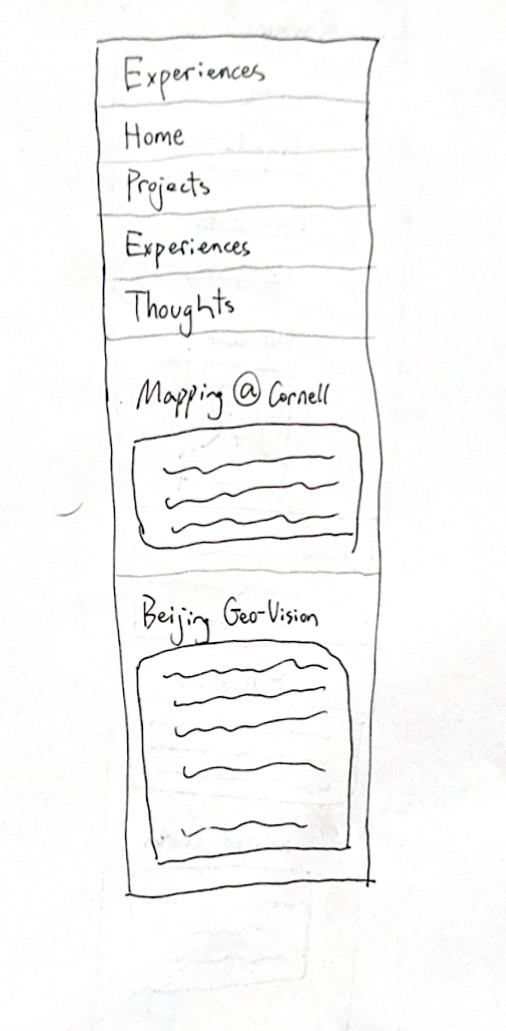 Experiences
Home
Projects
Experiences
Thoughts
Mapping @ Cornell
Beijing Geo-Vision